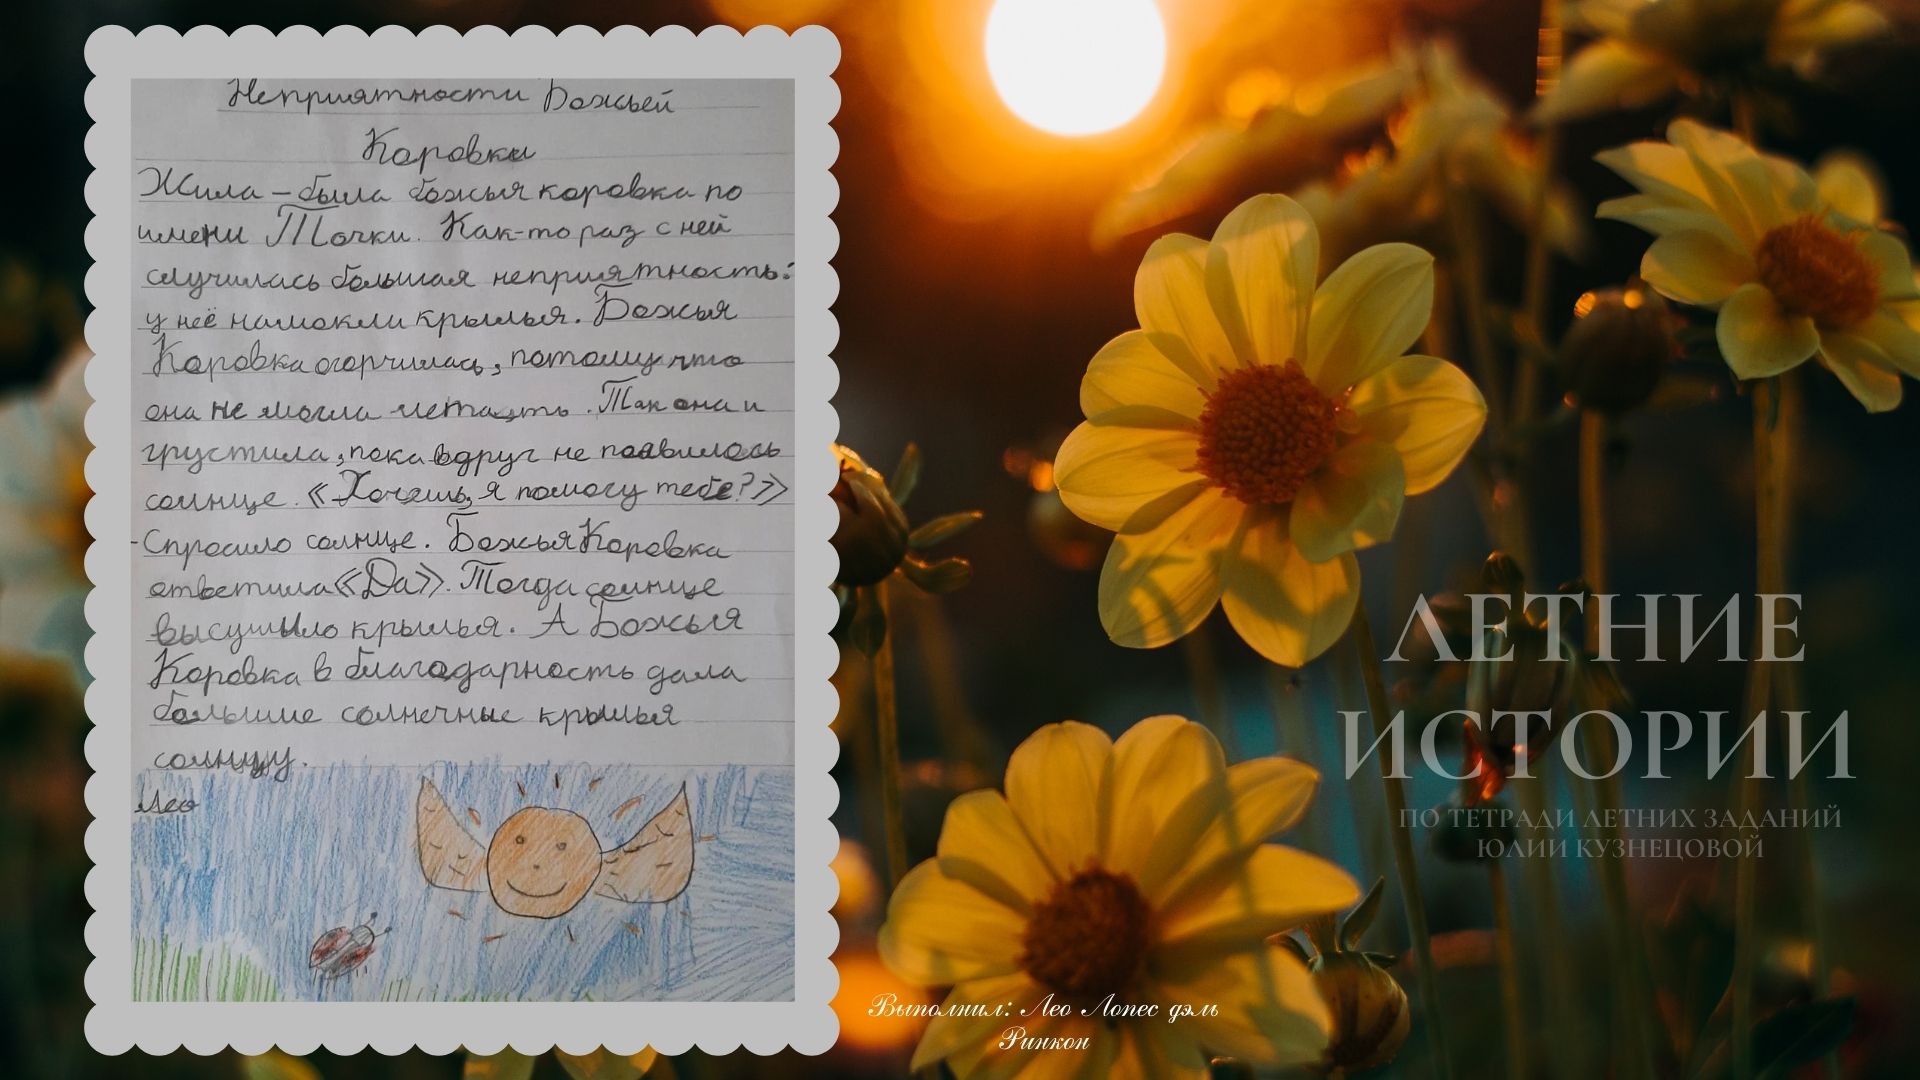 Неприятности Божьей
Коровки
Жила – была божья коровка по
имени Точки. Как-то раз с ней
случилась большая неприятность:
у неё намокли крылья. Божья
Коровка огорчилась, потому что
она не могла летать. Так она и
грустила, пока вдруг не появилось
солнце. «Хочешь, я помогу тебе?»
- Спросило солнце. Божья Коровка
ответила «Да». Тогда солнце
высушило крылья. А Божья
Коровка в благодарность дала
большие солнечные крылья
солнцу.
Лео
ЛЕТНИЕ
ИСТОРИИ
ПО ТЕТРАДИ ЛЕТНИХ ЗАДАНИЙ
ЮЛИИ КУЗНЕЦОВОЙ
Выполнил: Лео Лопес дэль
Ринкон